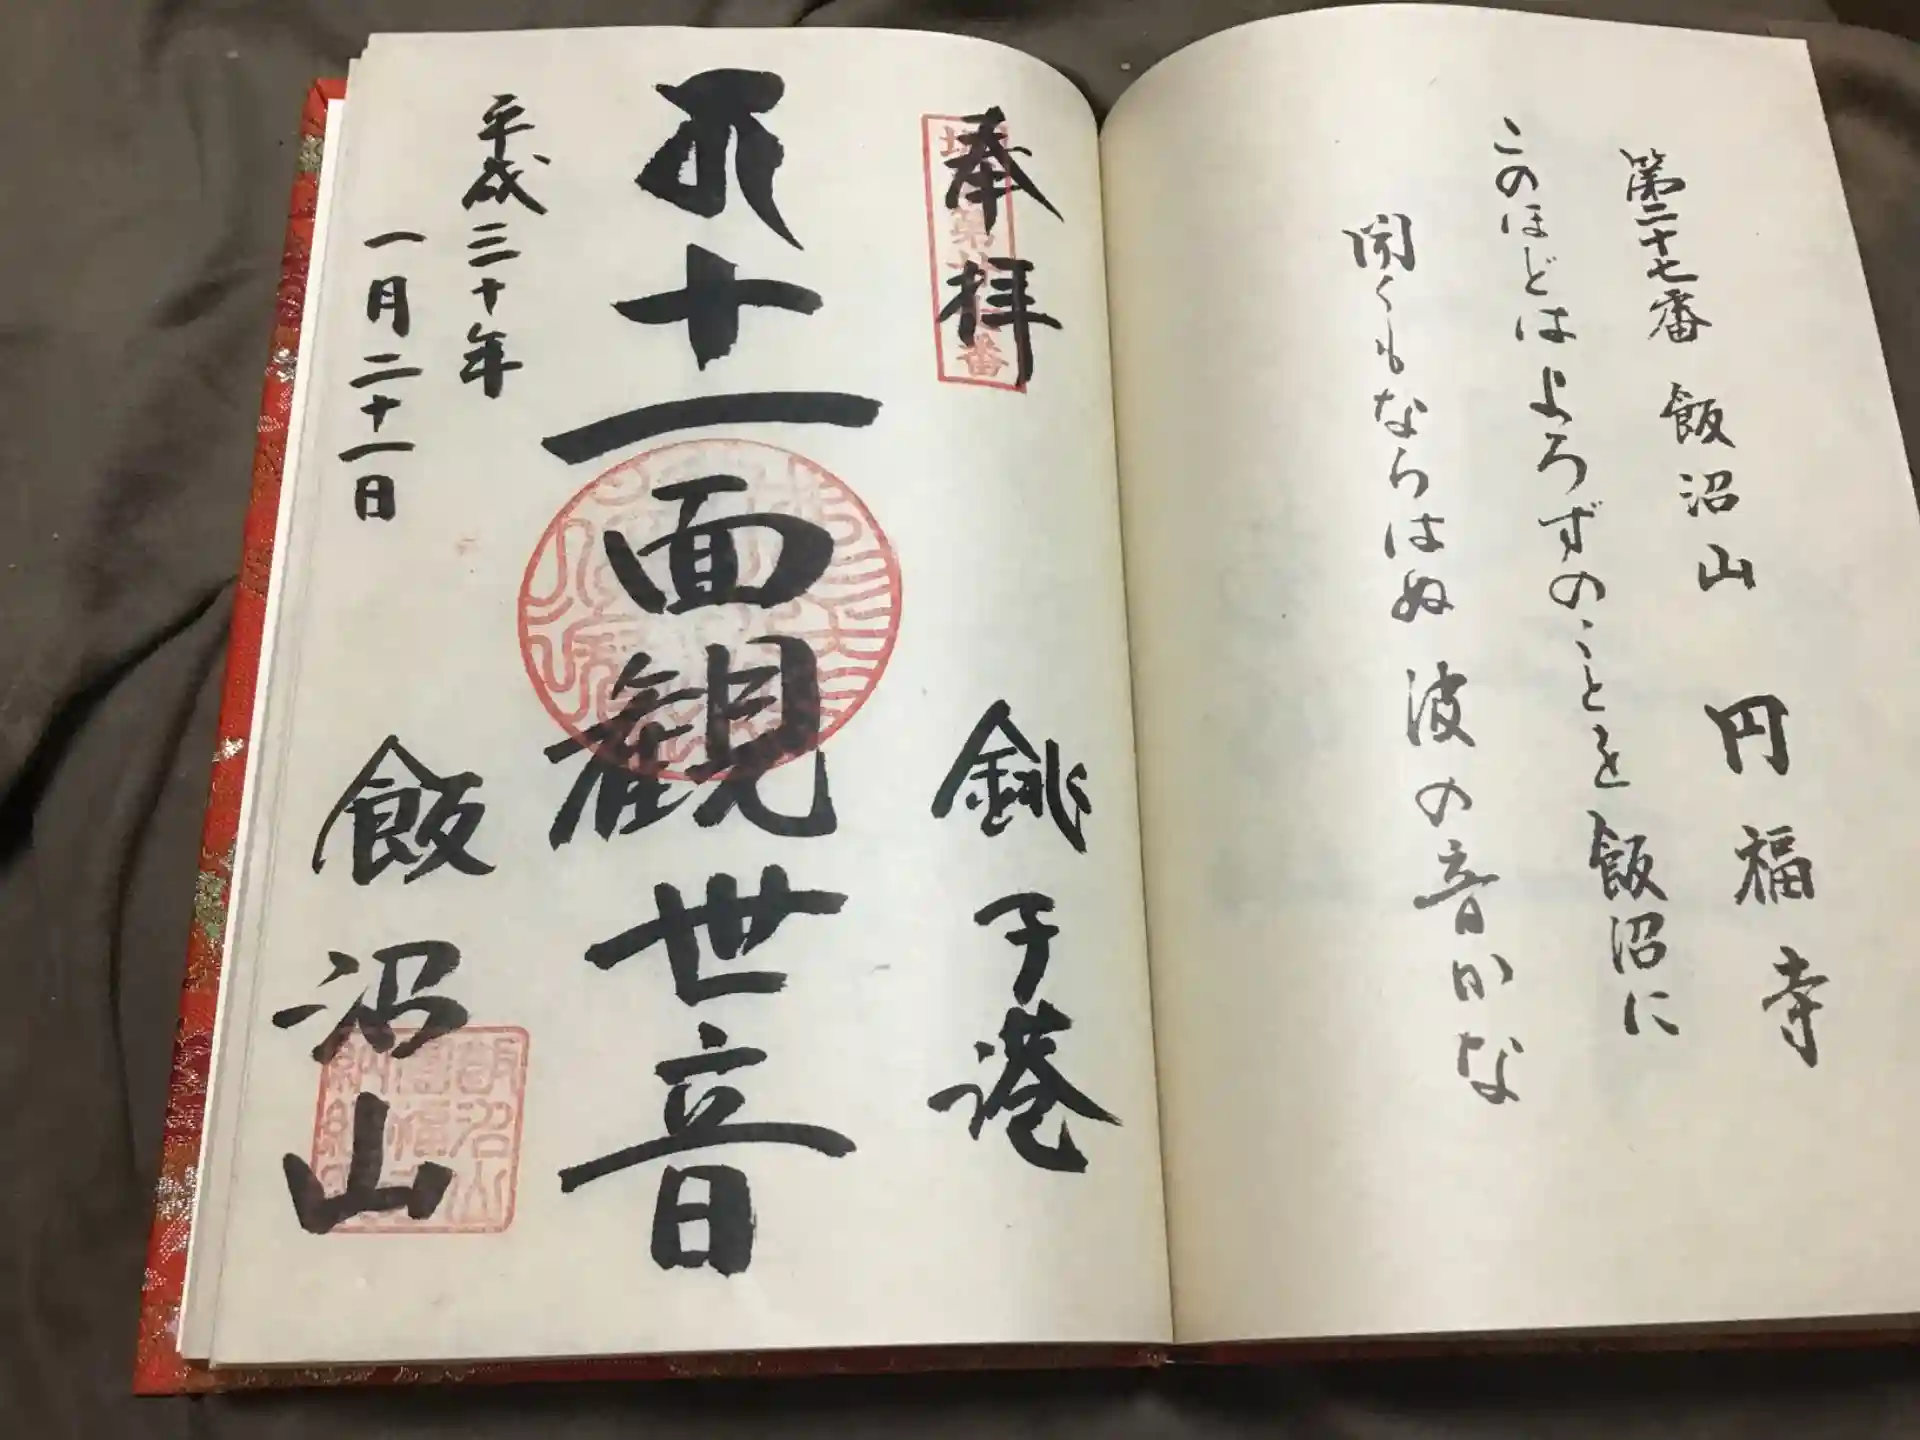 第二十七番 飯沼山 円福寺
このほどはよろずのことを飯沼に
聞くもならはぬ波の音かな
奉拝 銚子港
第 番
十一面観世音
平成三十年
一月二十一日
飯沼山
飯沼山